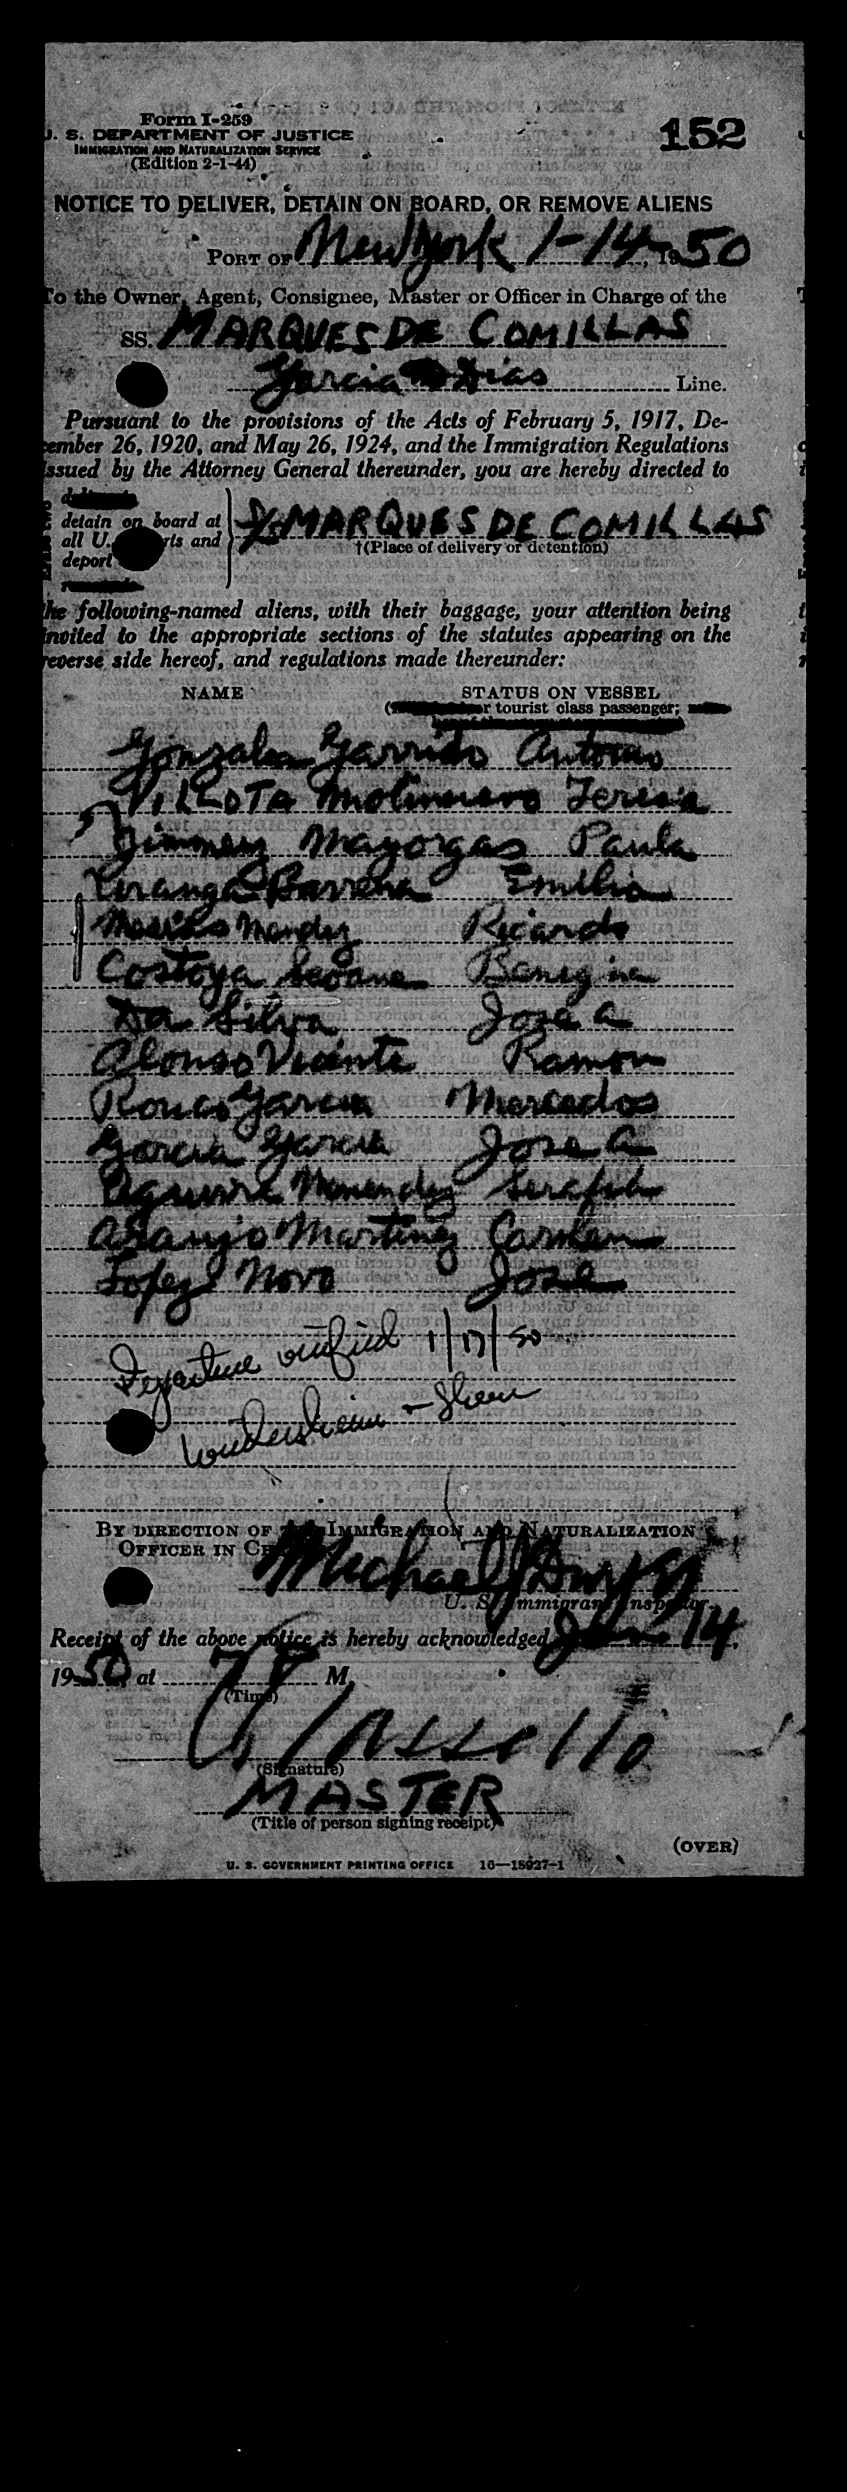 Form I-259
U. S. DEPARTMENT OF JUSTICE
IMMIGRATION AND NATURALIZATION SERVICE
(Edition 2-1-44)
152
NOTICE TO DELIVER, DETAIN ON BOARD, OR REMOVE ALIENS
PORT OF New York 1-14, 1950
To the Owner, Agent, Consignee, Master or Officer in Charge of the
SS. MARQUES DE COMILLAS
Garcia Dias Line.
Pursuant to the provisions of the Acts of February 5, 1917, De-
cember 26, 1920, and May 26, 1924, and the Immigration Regulations
issued by the Attorney General thereunder, you are hereby directed to
detain on board at
all U. and
deport
MARQUES DE COMILLAS
†(Place of delivery or detention)
the following-named aliens, with their baggage, your attention being
invited to the appropriate sections of the statutes appearing on the
reverse side hereof, and regulations made thereunder:
NAME STATUS ON VESSEL
tourist class passenger;
Gonzalez Garrido Antonio
VILLOTA Molinuevo Teresa
Jimmenez Mayorgas Paula
Barrena Emilia
Mendez Ricardo
Costoya Seoane
Da Silva Jose A
Alonso Vicente Ramon
Roucо Garcia Mercedos
Garcia Garcia Jose A
Aguirre Menendez Serafin
Araujo Martinez Carmen
Lopez Novo Jose
Departure verified 1/17/50
BY DIRECTION OF THE IMMIGRATION AND NATURALIZATION
OFFICER IN
Michael J
U. S. Immigrant Inspector.
Receipt of the above notice is hereby acknowledged Jan 14,
1950, at 7 P M.
(Time)
(Signature)
MASTER
(Title of person signing receipt)
(OVER)
U. S. GOVERNMENT PRINTING OFFICE 16—18927-1